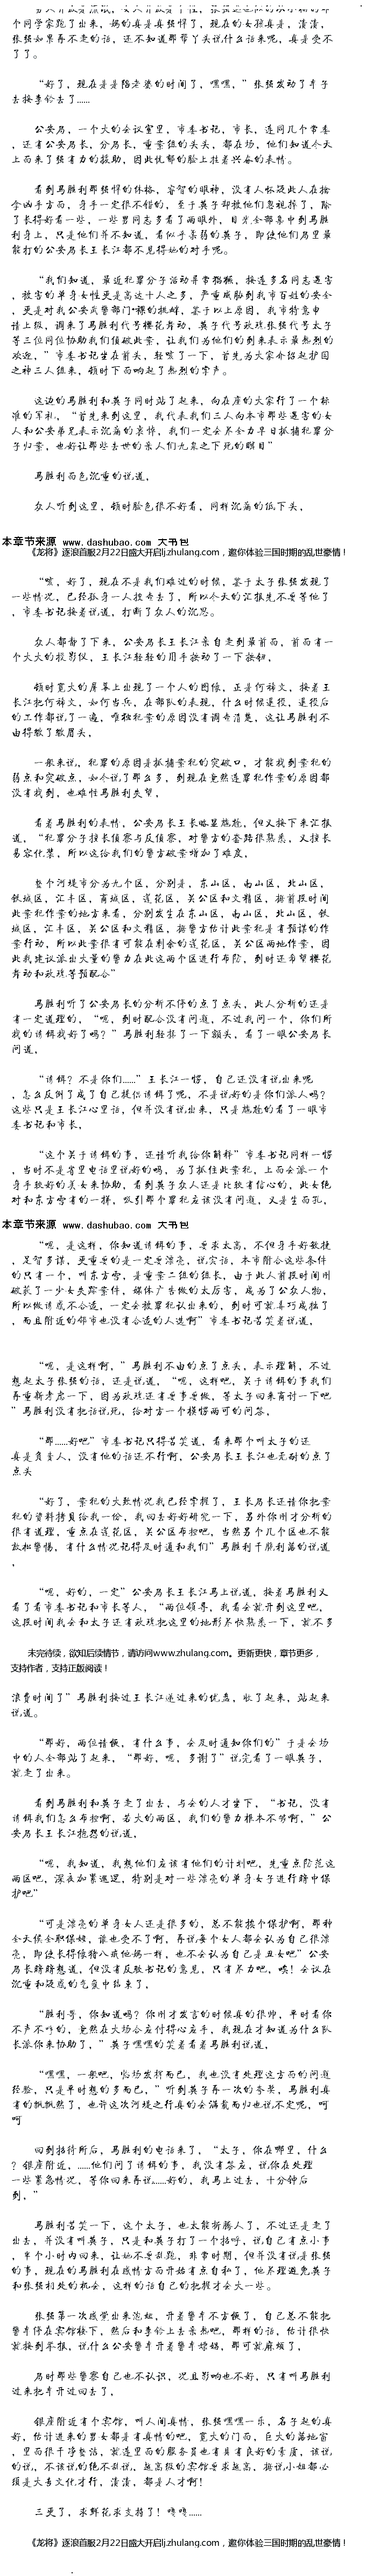 个同学家跑了出来，妈的真是真强悍了，现在的女孩真是，清清，
张强如果再不走的话，还不知道那帮丫头说什么话来呢，真是受不
了了。
“好了，现在是是陪老婆的时间了，嘿嘿，”张强发动了车子
去接李铃去了……
公安局，一个大的会议室里，市委书记，市长，连同几个常委
，还有公安局长，分局长，重案组的头头，都在场，他们知道今天
上面来了强有力的援助，因此忧郁的脸上挂着兴奋的表情。
看到马胜利那强悍的体格，睿智的眼神，没有人怀疑此人在擒
拿凶手方面，身手一定很不俗的，至于英子却被他们忽视掉了，除
了长得好看一些，一些男同志多看了两眼外，目光全部集中到马胜
利身上，只是他们并不知道，看似柔弱的英子，即使他们局里最
能打的公安局长王长江都不见得她的对手呢。
“我们知道，最近犯罪分子活动异常猖獗，接连多名同志遇害
，被害的单身女性更是高达十人之多，严重威胁到我市百姓的安全
，更是对我公安武警部门*裸的挑衅，鉴于以上原因，我市特意申
请上级，调来了马胜利代号樱花舞动，英子代号玫瑰张强代号太子
等三位同位协助我们侦破此案，让我们为他们的到来表示最热烈的
欢迎，”市委书记坐在前头，轻咳了一下，首先为大家介绍起护国
之神三人组来，顿时下面响起了热烈的掌声。
这边的马胜利和英子同时站了起来，向在座的大家行了一个标
准的军礼，“首先来到这里，我代表我们三人向本市那些遇害的女
人和公安弟兄表示沉痛的哀悼，我们一定会尽全力早日抓捕犯罪分
子归案，也好让那些去世的亲人们九泉之下死的瞑目”
马胜利面色沉重的说道，
众人听到这里，顿时脸色很不好看，同样沉痛的低下头，
本章节来源 www.dashubao.com 大书包
《龙将》逐浪首服2月22日盛大开启lj.zhulang.com，邀你体验三国时期的乱世豪情！
“咳，好了，现在不是我们难过的时候，鉴于太子张强发现了
一些情况，已经孤身一人搜寻去了，所以今天的汇报先不要等他了
，市委书记接着说道，打断了众人的沉思。
众人都静了下来，公安局长王长江亲自走到最前面，前面有一
个大大的投影仪，王长江轻轻的用手按动了一下按钮，
顿时宽大的屏幕上出现了一个人的图像，正是何神文，接着王
长江把何神文，如何当兵，在部队的表现，什么时候退役，退役后
的工作都说了一遍，唯独犯案的原因没有调查清楚，这让马胜利不
由得皱了皱眉头，
一般来说，犯罪的原因是抓捕案犯的突破口，才能找到案犯的
弱点和突破点，如今说了那么多，到现在竟然连罪犯作案的原因都
没有找到，也难怪马胜利失望，
看着马胜利的表情，公安局长王长略显尴尬，但又接下来汇报
道，“犯罪分子擅长侦察与反侦察，对警方的套路很熟悉，又擅长
易容化装，所以这给我们的警方破案增加了难度，
整个河堤市分为九个区，分别是，东山区，南山区，北山区，
铁城区，汇丰区，商城区，莲花区，吴公区和文精区，据前段时间
此案犯作案的地方来看，分别发生在东山区，南山区，北山区，铁
城区，汇丰区，吴公区和文精区，据警方估计此案犯是有预谋的作
案行动，所以此案很有可能在剩余的莲花区，吴公区两地作案，因
此我建议派出大量的警力在此这两个区进行布防，到时还希望樱花
舞动和玫瑰等预配合”
马胜利听了公安局长的分析不停的点了点头，此人分析的还是
有一定道理的，“嗯，到时配合没有问题，不过我问一个，你们所
找的诱饵找好了吗？”马胜利轻挥了一下额头，看了一眼公安局长
问道，
“诱饵？不是你们……”王长江一愣，自己还没有说出来呢
，怎么反倒了成了自己提供诱饵了呢，不是说好的是你们派人吗？
这些只是王长江心里话，但并没有说出来，只是尴尬的看了一眼市
委书记和市长，
“这个关于诱饵的事，还请听我给你解释”市委书记同样一愣
，当时不是省里电话里说好的吗，为了抓住此案犯，上面会派一个
身手较好的美女来协助，看到英子众人还是比较有信心的，此女绝
对和东方雪有的一拼，吸引那个罪犯应该没有问题，又是生面孔，
本章节来源 www.dashubao.com 大书包
“嗯，是这样，你知道诱饵的事，要求太高，不但身手好敏捷
，足智多谋，更重要的是一定要漂亮，说实话，本市附合这些条件
的只有一个，叫东方雪，是重案二组的组长，由于此人前段时间刚
破获了一少女失踪案件，媒体广告做的太厉害，成为了公众人物，
所以做诱惑不合适，一定会被罪犯认出来的，到时可就弄巧成拙了
，而且附近的邻市也没有合适的人选啊”市委书记苦笑着说道，
“嗯，是这样啊，”马胜利不由的点了点头，表示理解，不过
想起太子张强的话，还是说道，“嗯，这样吧，关于诱饵的事我们
再重新考虑一下，因为玫瑰还有要事要做，等太子回来商讨一下吧
”马胜利没有把话说死，给对方一个模愣两可的问答，
“那……好吧”市委书记只得苦笑道，看来那个叫太子的还
真是负责人，没有他的话还不行啊，公安局长王长江也无耐的点了
点头
“好了，案犯的大致情况我已经掌握了，王局长还请你把案
犯的资料拷贝给我一份，我回去好好研究一下，另外你刚才分析的
很有道理，重点在莲花区，吴公区布控吧，当然另个几个区也不能
放松警惕，有什么情况记得及时通和我们”马胜利干脆利落的说道
，
“嗯，好的，一定”公安局长王长江马上说道，接着马胜利又
看了看市委书记和市长等人，“两位领导，我看会就开到这里吧，
这段时间我会和太子还有玫瑰把这里的地形尽快熟悉一下，就不多
未完待续，欲知后续情节，请访问www.zhulang.com。更新更快，章节更多，
支持作者，支持正版阅读！
浪费时间了”马胜利接过王长江递过来的优盘，收了起来，站起来
说道。
“那好，两位请慢，有什么事，会及时通知你们的”于是会场
中的人全部站了起来，“那好，嗯，多谢了”说完看了一眼英子，
就走了出来。
看到马胜利和英子走了出去，与会的人才坐下，“书记，没有
诱饵我们怎么布控啊，若大的两区，我们的警力根本不够啊，”公
安局长王长江抱怨的说道，
“嗯，我知道，我想他们应该有他们的计划吧，先重点防范这
两区吧，深夜加紧巡逻，特别是对一些漂亮的单身女子进行暗中保
护吧”
“可是漂亮的单身女人还是很多的，总不能挨个保护啊，那种
全天候全职保镖，谁也受不了啊，再说每个女人都会认为自己很漂
亮，即使长得像猪八戒他妈一样，也不会认为自己是丑女吧”公安
局长暗暗想道，但没有反驳书记的意见，只有尽力吧，唉！会议在
沉重和疑惑的气氛中结束了，
“胜利哥，你知道吗？你刚才发言的时候真的很帅，平时看你
不声不吭的，竟然在大场合应付得心应手，我现在才知道为什么队
长派你来协助了，”英子嘿嘿的笑着看着马胜利说道，
“嘿嘿，一般吧，临场发挥而已，我也没有处理这方面的问题
经验，只是平时想的多而已，”听到英子再一次的夸奖，马胜利真
有的飘飘然了，也许这次河堤之行真的会满载而归也说不定呢，呵
呵
回到招待所后，马胜利的电话来了，“太子，你在哪里，什么
？银座附近，……他们问了诱饵的事，我没有答应，说你在处理
一些紧急情况，等你回来再说……好的，我马上过去，十分钟后
到，”
马胜利苦笑一下，这个太子，也太能折腾人了，不过还是走了
出去，并没有叫英子，只是和英子打了一个招呼，说自己有点小事
，半个小时内回来，让她不要乱跑，非常时期，但并没有说是张强
的事，现在的马胜利在感情方面开始有点自私了，他尽理避免英子
和张强相处的机会，这样的话自己的把握才会大一些。
张强第一次感觉出来泡妞，开着警车不方便了，自己总不能把
警车停在宾馆楼下，然后和李铃上去亲热吧，那样的话，估计很快
就接到举报，说什么公安警车开着警车嫖娼，那可就麻烦了，
局时那些警察自己也不认识，况且影响也不好，只有叫马胜利
过来把车开过回去了，
银座附近有个宾馆，叫人间真情，张强嘿嘿一乐，名子起的真
好，估计进来的男女都是有真情的吧，宽大的门面，巨大的落地窗
，里面很干净整洁，就连里面的服务员也有具有良好的素质，该说
的说，不该说的绝不乱说，越高级的宾馆要求越高，据说小姐都必
须是大专文化才行，清清，都是人才啊！
三更了，求鲜花求支持了！嘻嘻……
《龙将》逐浪首服2月22日盛大开启lj.zhulang.com，邀你体验三国时期的乱世豪情！